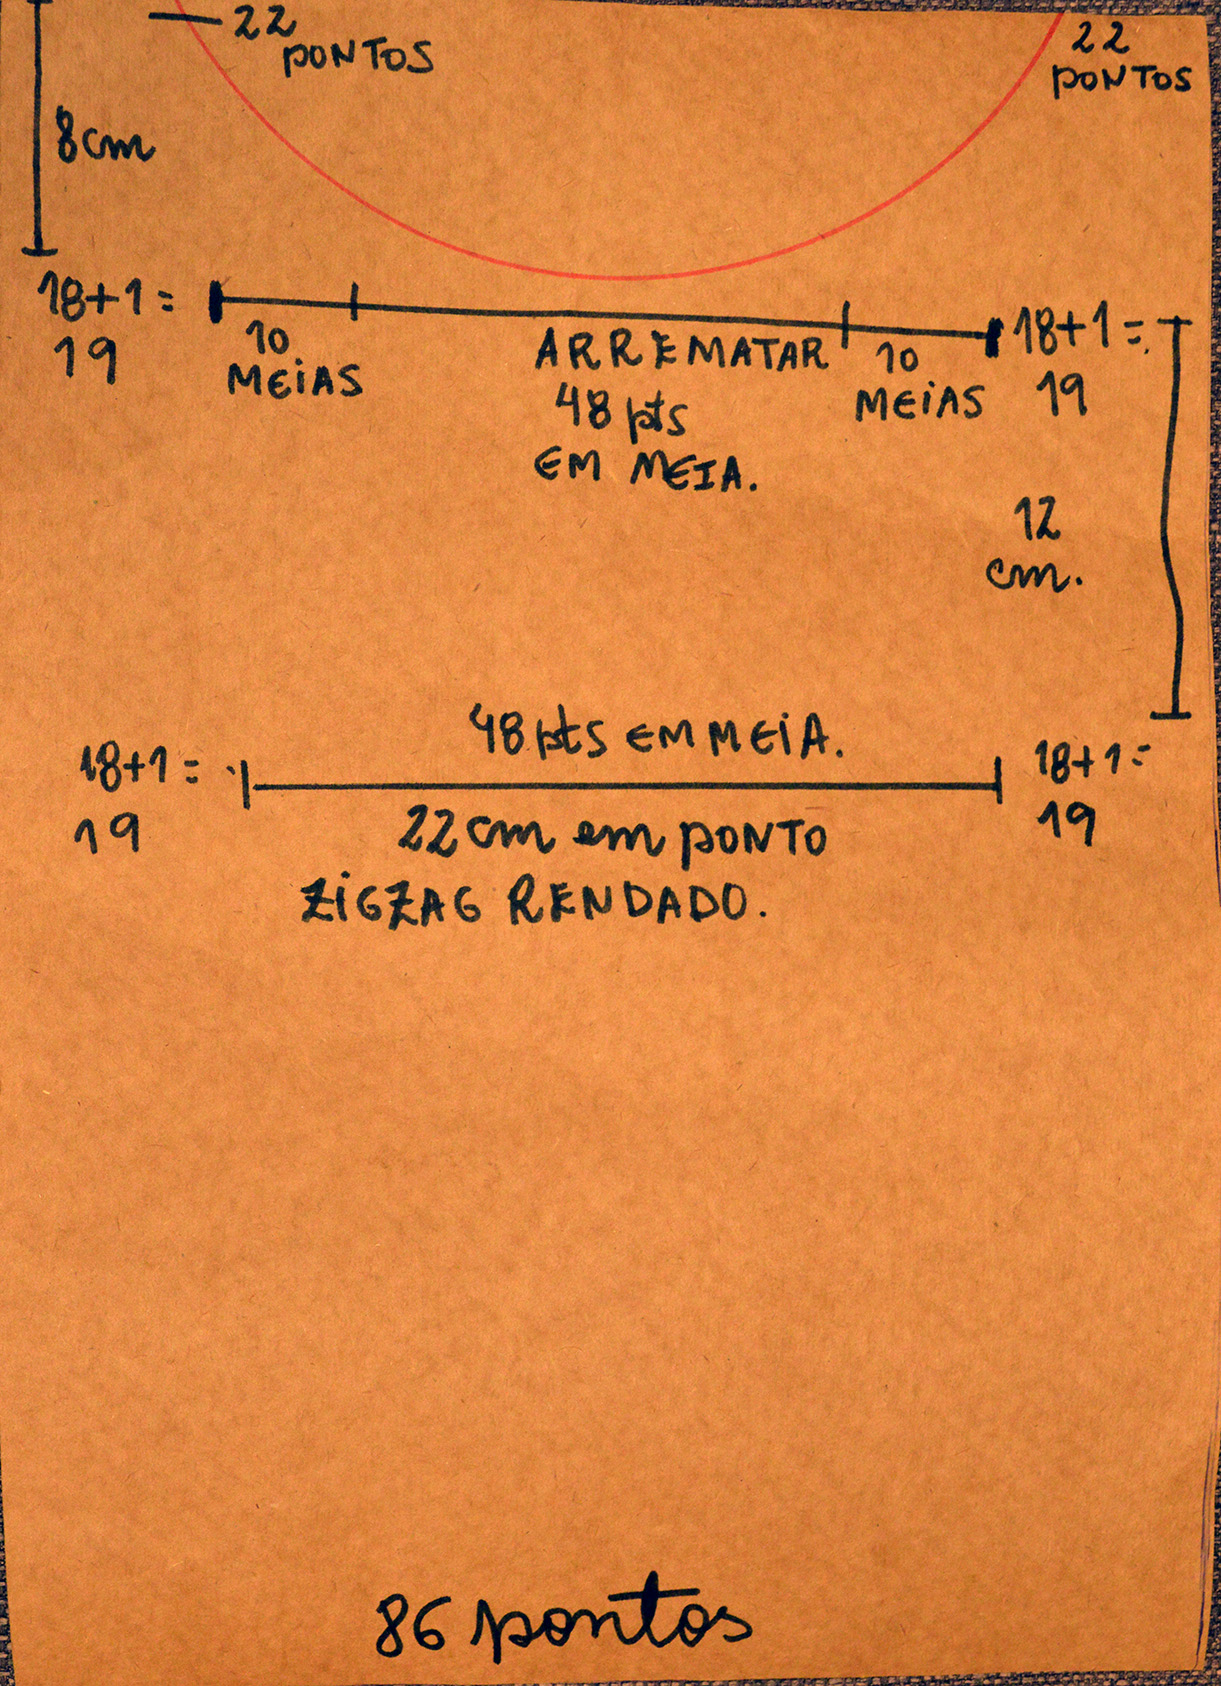 22
PONTOS
22
PONTOS
8cm
18+1=
19
10
MEIAS
ARREMATAR
48 pts
EM MEIA.
10
MEIAS
18+1=
19
12
cm.
48 pts EM MEIA.
18+1=
19
18+1=
19
22cm em PONTO
ZIGZAG RENDADO.
86 pontos